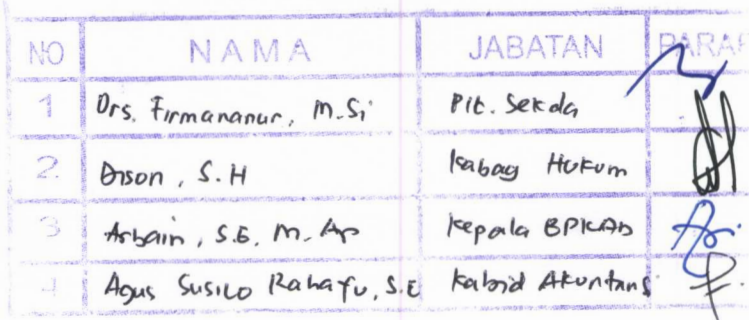 NO NAMA JABATAN PARAF
1 Drs. Firmananur, M.Si Plt. Sekda
2. Dison, S.H Kabag Hukum
3 Arbain, S.E, M.Ap Kepala BPKAD
4 Agus Susilo Rahayu, S.E Kabid Akuntansi